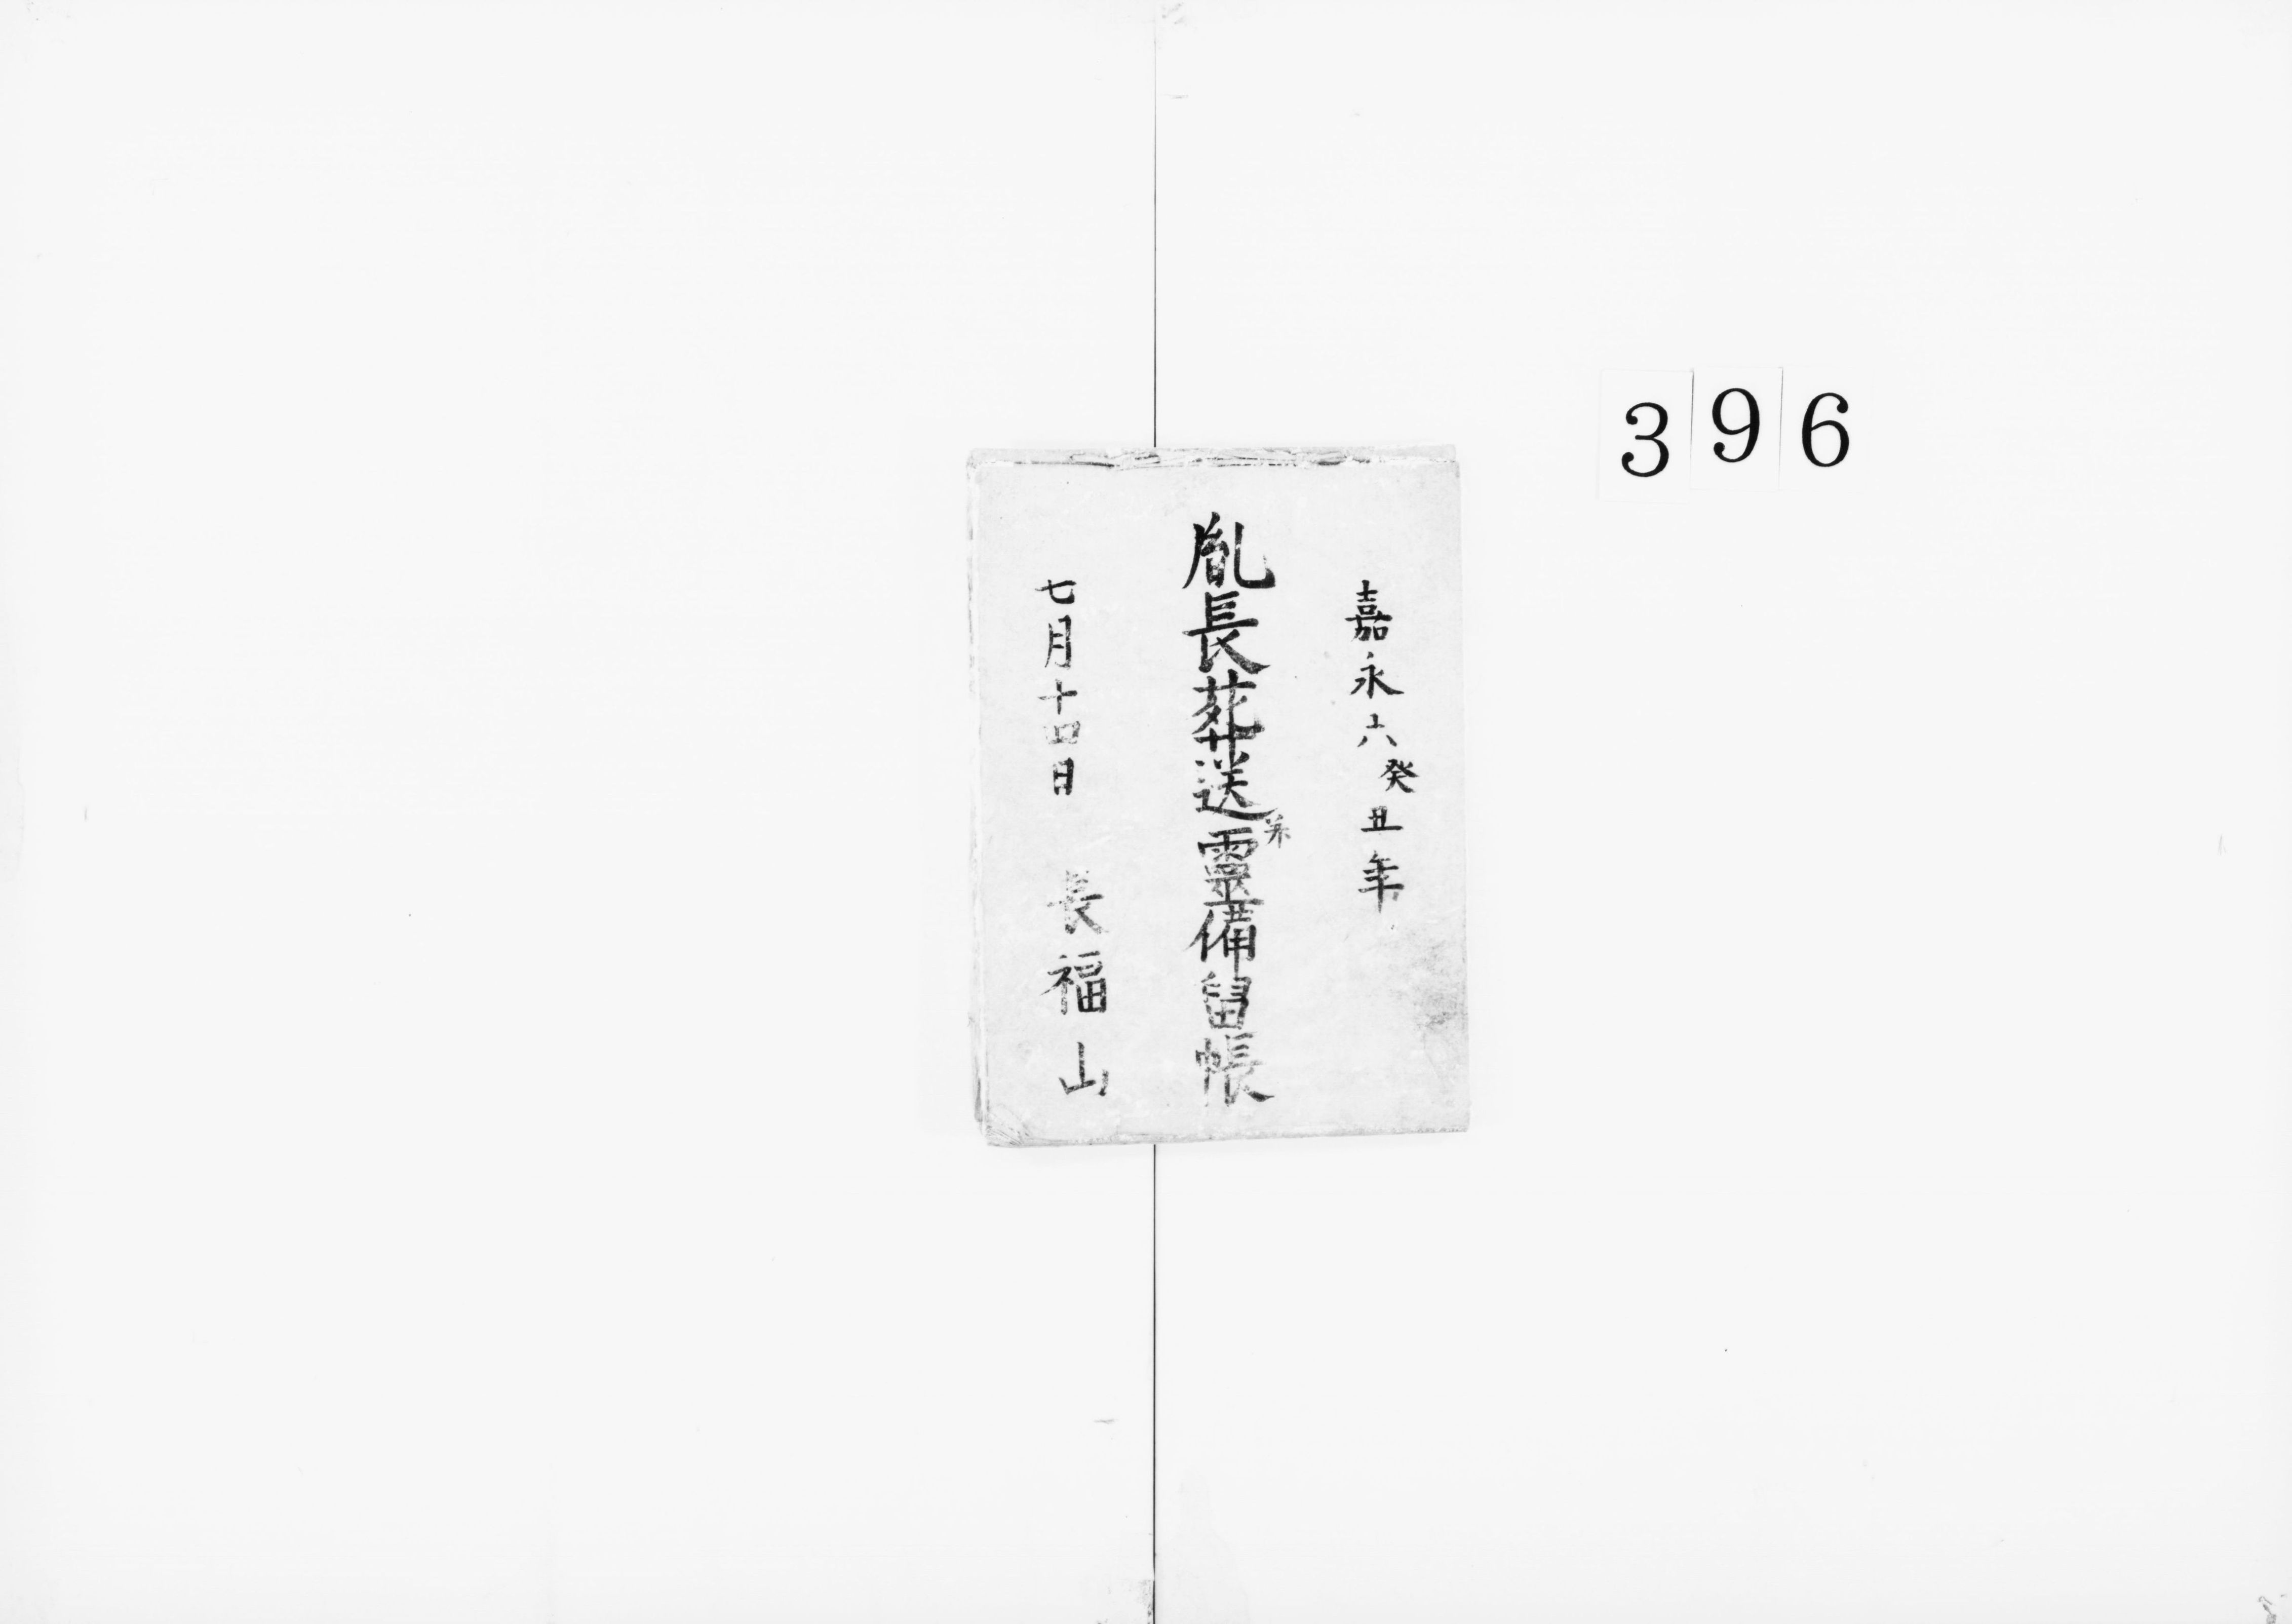 396
嘉永六癸丑年
胤長葬送并靈備留帳
七月十四日 長福山